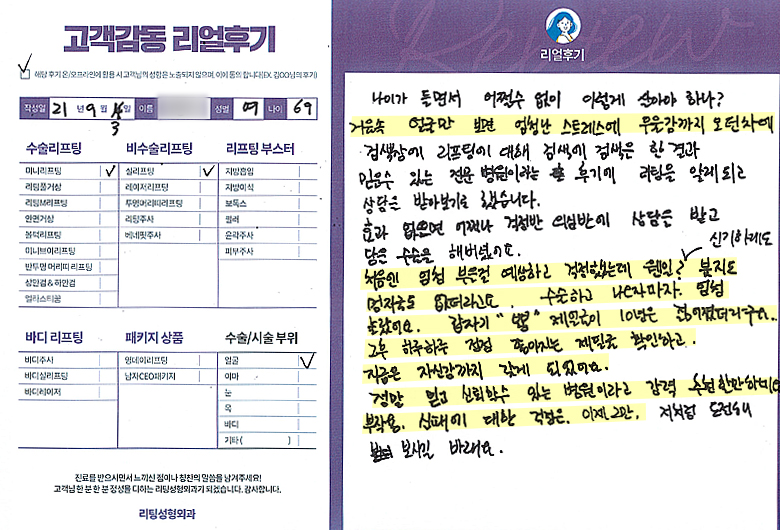 고객감동 리얼후기
✓ 해당 후기 온/오프라인에 활용 시 고객님의 성함은 노출되지 않으며, 이에 동의 합니다(EX. 김OO님의 후기)
작성일 21 년 9 월 3 일 이름 성별 여 나이 69
수술리프팅
미니리프팅 ✓
리팅풀거상
리팅M리프팅
안면거상
볼턱리프팅
미니브이리프팅
반투명 머리띠 리프팅
상안검 & 하안검
엘라스티꿈
비수술리프팅
실리프팅 ✓
레이저리프팅
투명머리띠리프팅
리팅주사
베네핏주사
리프팅 부스터
지방흡입
지방이식
보톡스
필러
윤곽주사
피부주사
바디 리프팅
바디주사
바디실리프팅
바디레이저
패키지 상품
원데이리프팅
남자CEO패키지
수술/시술 부위
얼굴 ✓
이마
눈
목
바디
기타 ( )
진료를 받으시면서 느끼신 점이나 칭찬의 말씀을 남겨주세요!
고객님 한 분 한 분 정성을 다하는 리팅성형외과가 되겠습니다. 감사합니다.
리팅성형외과
Review
리얼후기
나이가 들면서 어쩔수 없이 이렇게 살아야 하나?
거울속 얼굴만 보면 엄청난 스트레스에 우울감까지 오던차에
검색창에 리프팅에 대해 검색에 검색은 한 결과
믿을수 있는 전문 병원이라는 후기에 리팅을 알게되고
상담을 받아보기로 했습니다.
효과 없으면 어쩌나 걱정반 의심반에 상담을 받고
담은 수술을 해버렸어요.
처음엔 엄청 부을걸 예상하고 걱정했는데 웬일? 신기하게도 붓지도
멍자국도 없더라고요. 수술하고 나오자마자 엄청
놀랐어요. 갑자기 "뿅" 제얼굴이 10년은 젊어졌더라구요..
그후 하루하루 점점 좋아지는 제얼굴 확인하고.
지금은 자신감까지 갖게 되었어요.
정말 믿고 신뢰할수 있는 병원이라고 강력 추천합니다
부작용. 실패에 대한 걱정은. 이제그만. 저처럼 도전해
보시길 바래요.